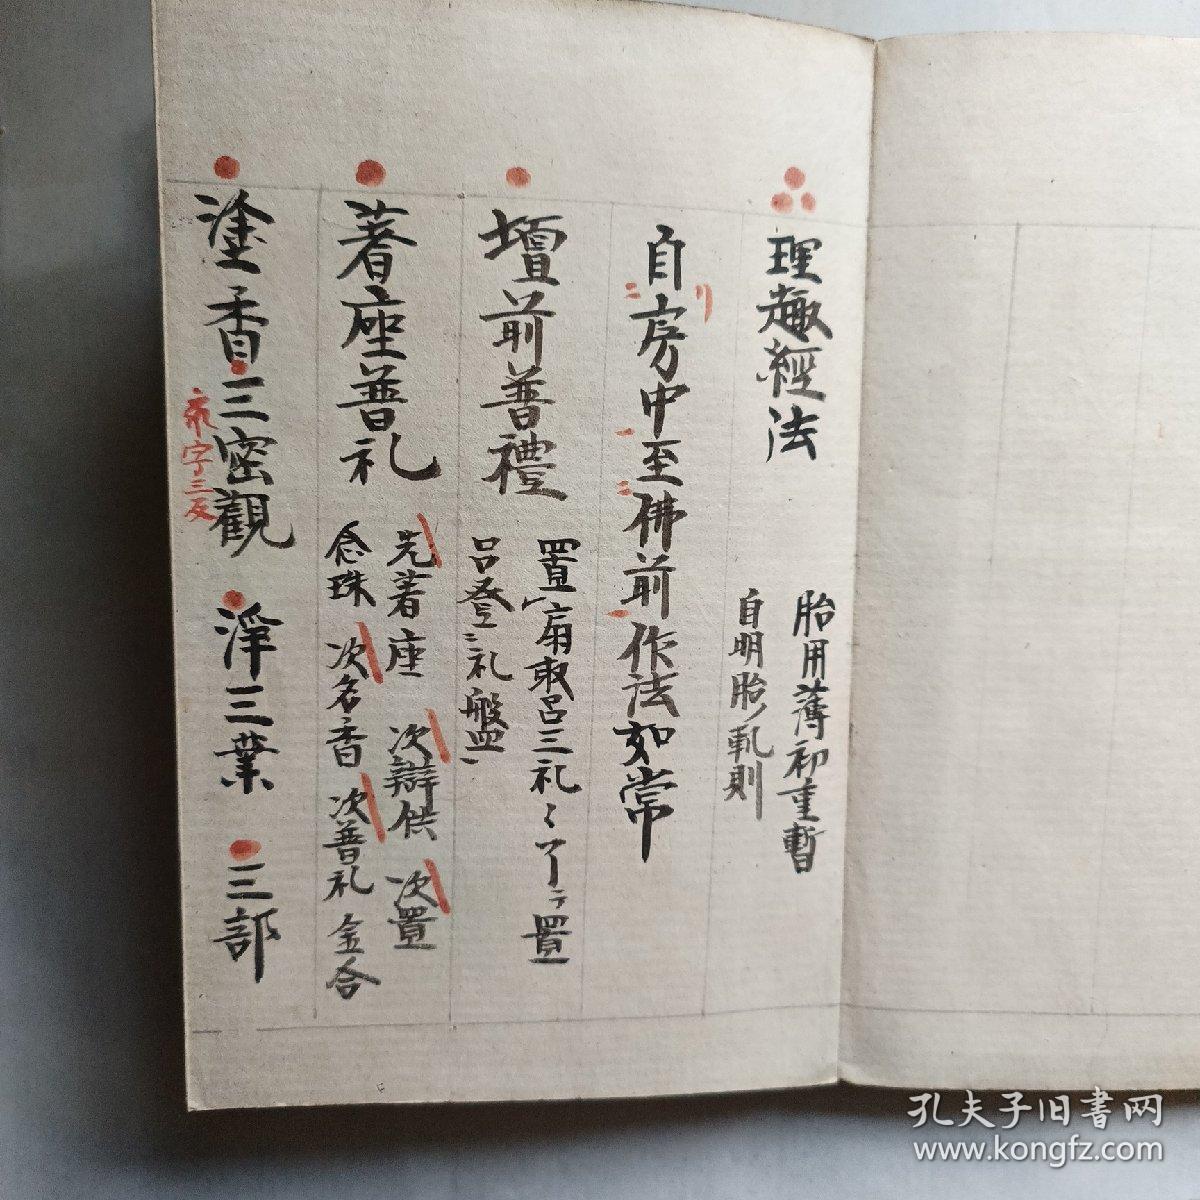 理趣經法
胎用薄初重暫
自明胎ノ軌則
自房中至佛前作法如常
リ
二
一
二
一
壇前普禮
置扇取呂三礼〻了テ置
呂登ニ礼盤
著座普礼
先著座 次辨供 次置
念珠 次名香 次普礼 金合
塗香三密觀 淨三業 三部
字三反
孔夫子旧書网
www.kongfz.com